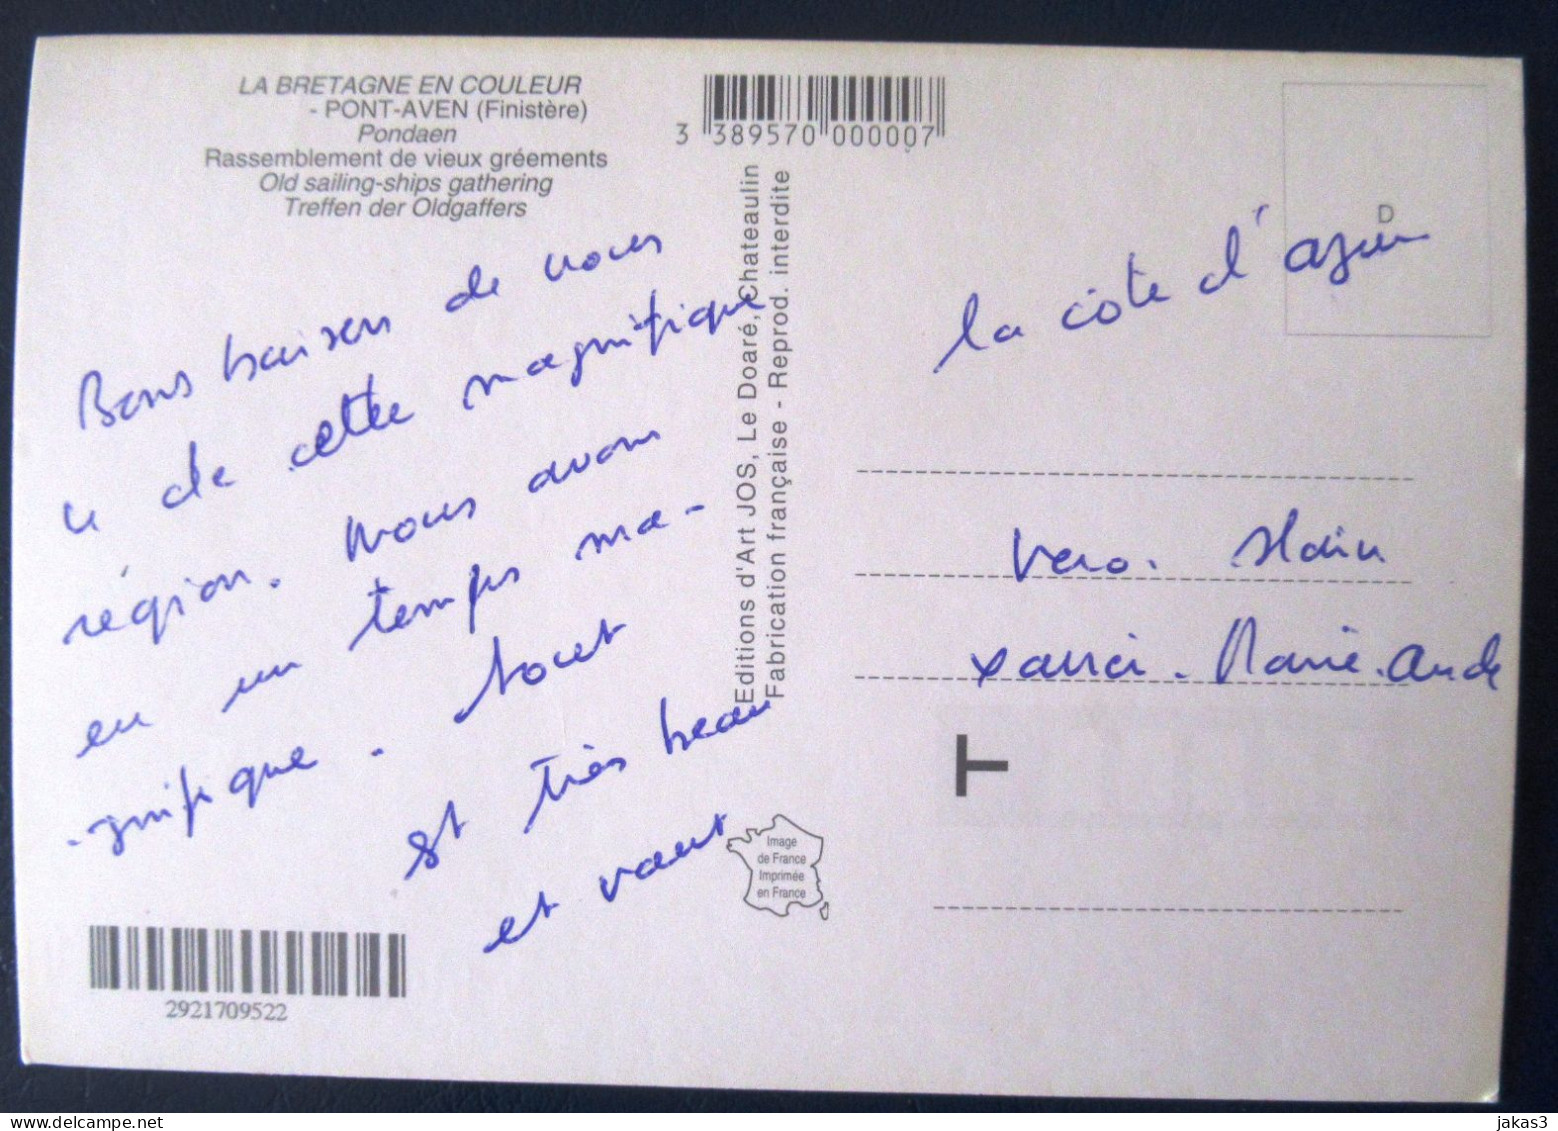 LA BRETAGNE EN COULEUR
- PONT-AVEN (Finistère)
Pondaen
Rassemblement de vieux gréements
Old sailing-ships gathering
Treffen der Oldgaffers
3 389570 000007
Editions d'Art JOS, Le Doaré, Chateaulin
Fabrication française - Reprod. interdite
D
Bons baisers de nous
4 de cette magnifique
région. Nous avons
eu un temps ma-
-gnifique. tout
st très beau
et vaut
la côte d'azur
Vero. Alain
Marie. Aude
T
Image
de France
Imprimée
en France
2921709522
jakas3